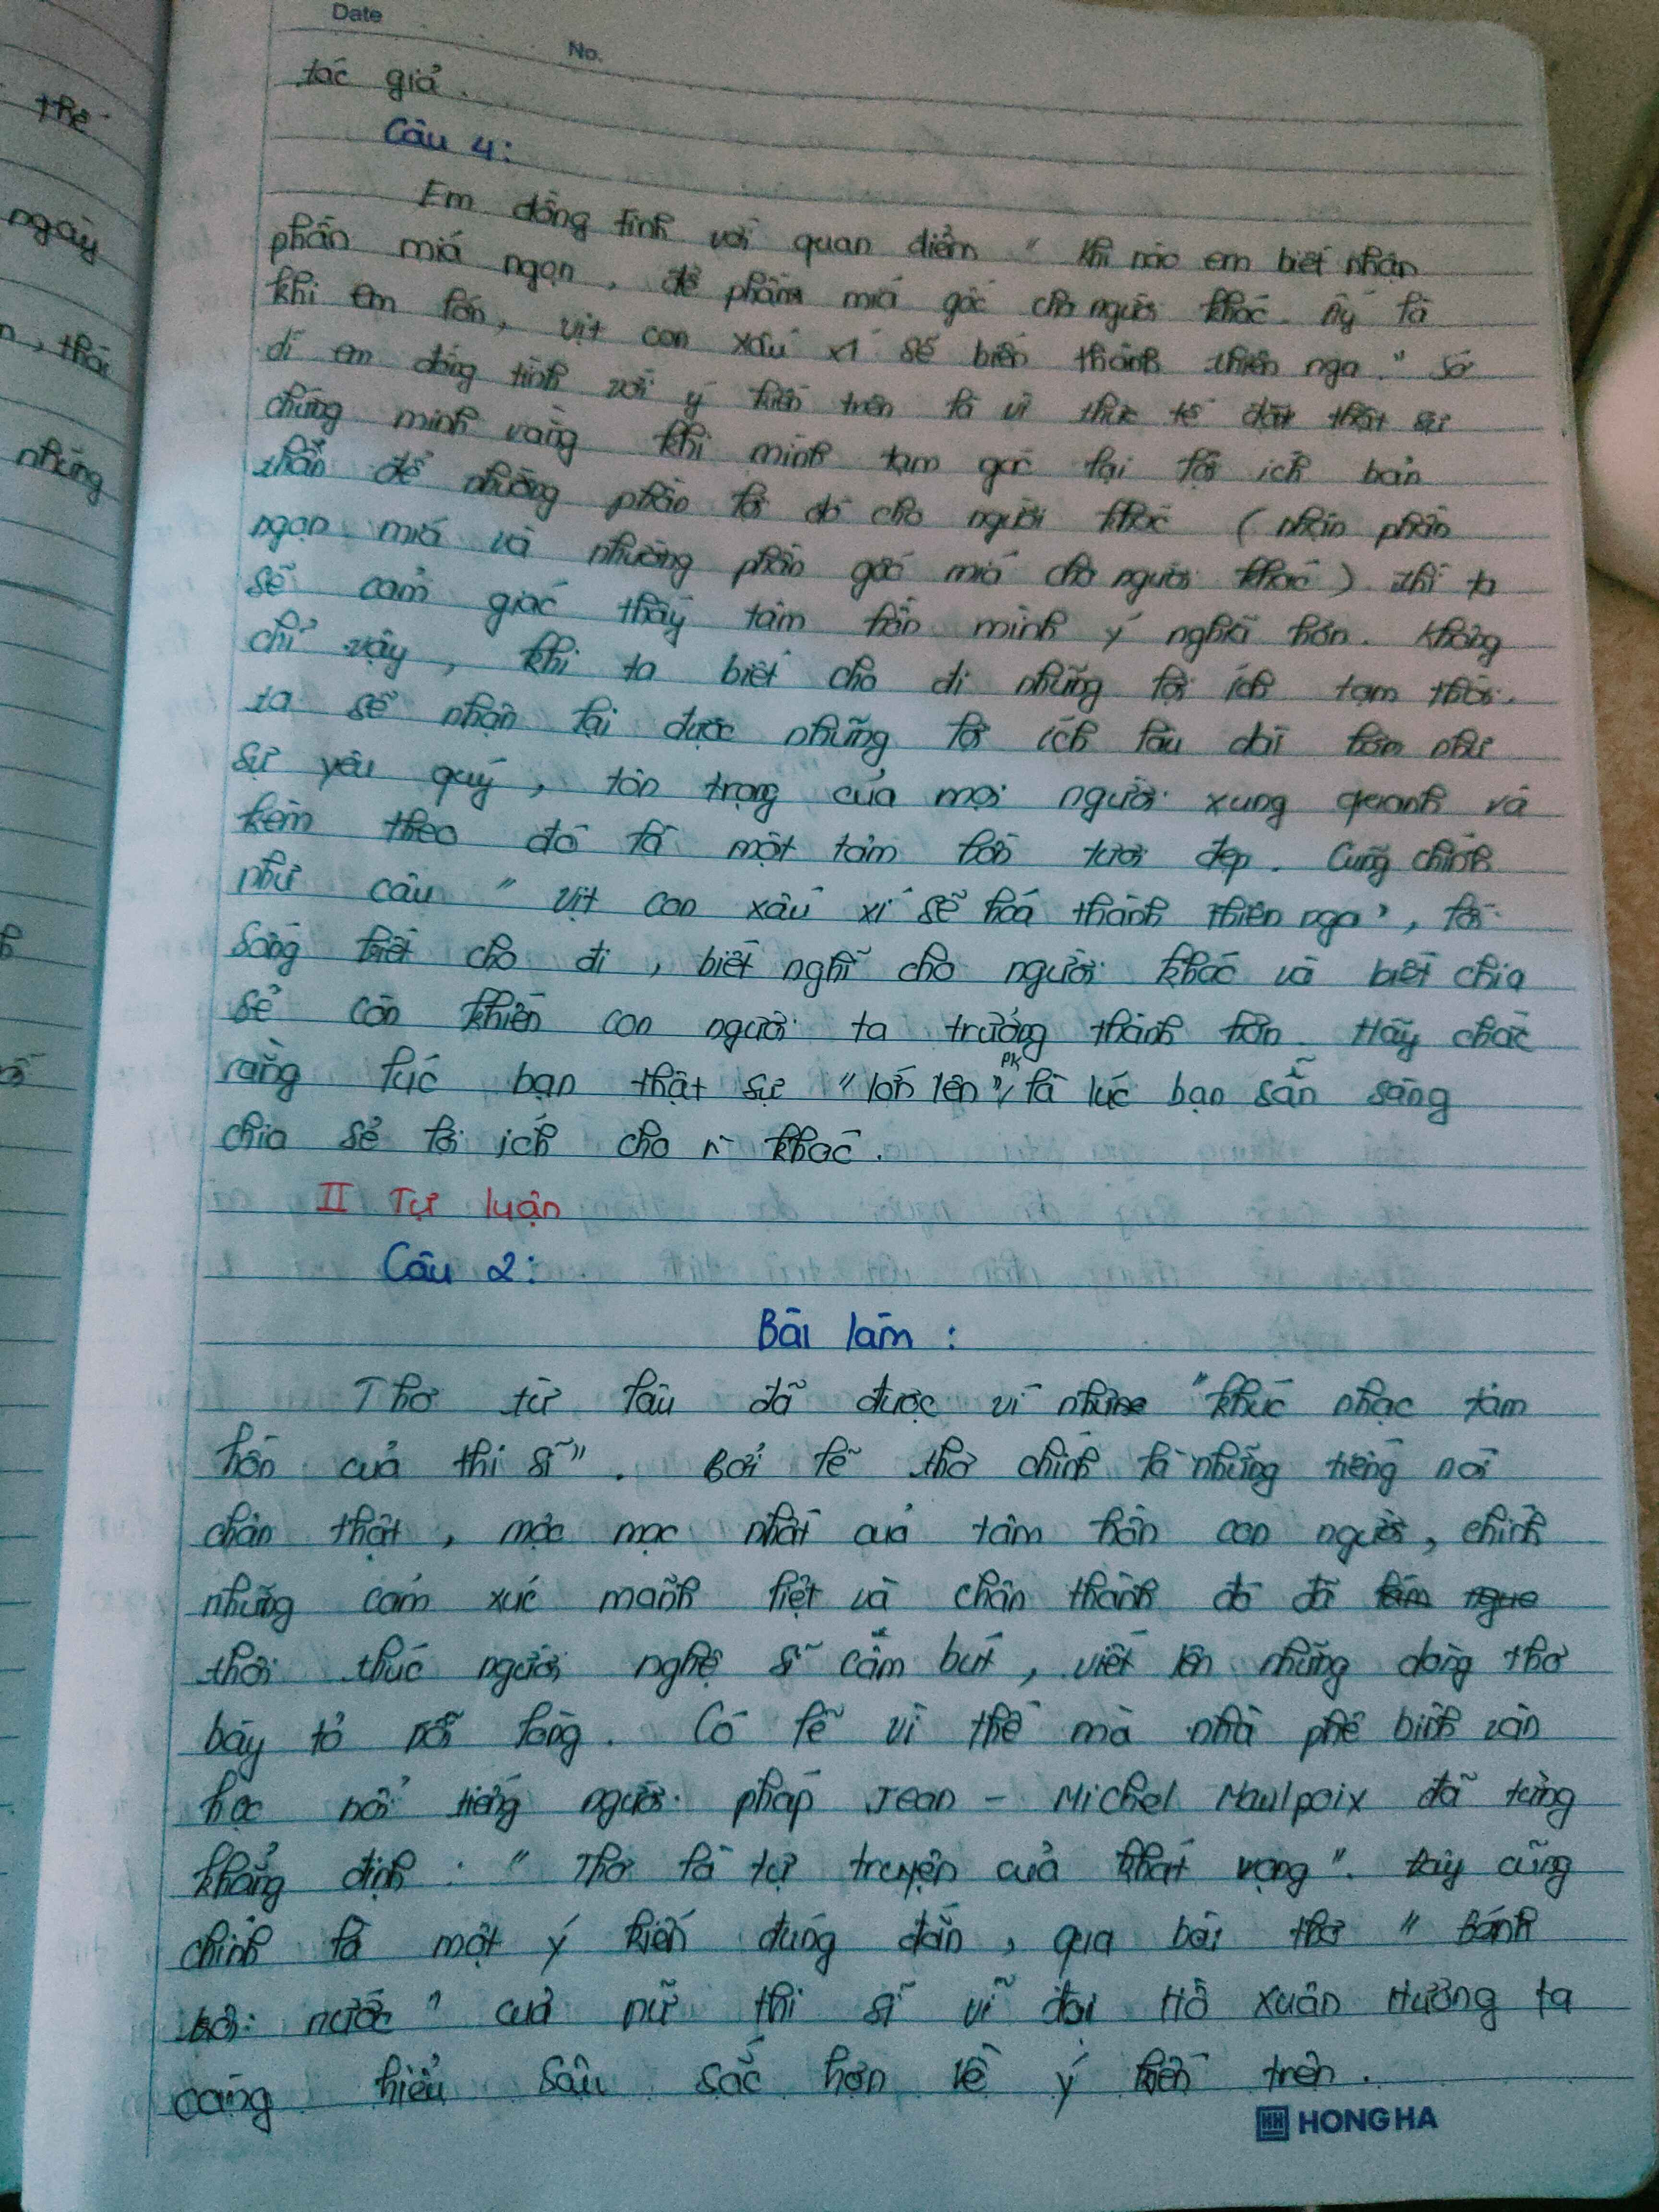 Date
No.
thế
ngày
, thái
những
tác giả.
Câu 4:
Em đồng tình với quan điểm " khi nào em biết nhận
phần mía ngọn, để phần mía gốc cho người khác. Ấy là
khi em lớn, vịt con xấu xí sẽ biến thành thiên nga." Sở
dĩ em đồng tình với ý kiến trên là vì thực tế thật sự
chứng minh rằng khi mình tạm gác lại lợi ích bản
thân để nhường phần lợi đó cho người khác ( nhận phần
ngọn mía và nhường phần gốc mía cho người khác ) thì ta
sẽ cảm giác thấy tâm hồn mình ý nghĩa hơn. Không
chỉ vậy, khi ta biết cho đi những lợi ích tạm thời.
ta sẽ nhận lại được những lợi ích lâu dài hơn như
sự yêu quý, tôn trọng của mọi người xung quanh và
kèm theo đó là một tâm hồn tươi đẹp. Cũng chính
như câu " vịt con xấu xí sẽ hoá thành thiên nga", lối
sống biết cho đi, biết nghĩ cho người khác và biết chia
sẻ còn khiến con người ta trưởng thành hơn. Hãy chắc
rằng lúc bạn thật sự "lớn lên", là lúc bạn sẵn sàng
chia sẻ lợi ích cho khác.
II Tự luận
Câu 2:
Bài làm :
Thơ từ lâu đã được ví như "khúc nhạc tâm
hồn của thi sĩ". Bởi lẽ thơ chính là những tiếng nói
chân thật, mộc mạc nhất của tâm hồn con người, chính
những cảm xúc mãnh liệt và chân thành đó đã
thôi thúc người nghệ sĩ cầm bút, viết lên những dòng thơ
bày tỏ nỗi lòng. Có lẽ vì thế mà nhà phê bình văn
học nổi tiếng người pháp Jean - Michel Maulpoix đã từng
khẳng định : " Thơ là tự truyện của khát vọng". Đây cũng
chính là một ý kiến đúng đắn, qua bài thơ " bánh
trôi nước" của nữ thi sĩ vĩ đại Hồ Xuân Hương ta
càng hiểu sâu sắc hơn về ý kiến trên.
HH HONG HA